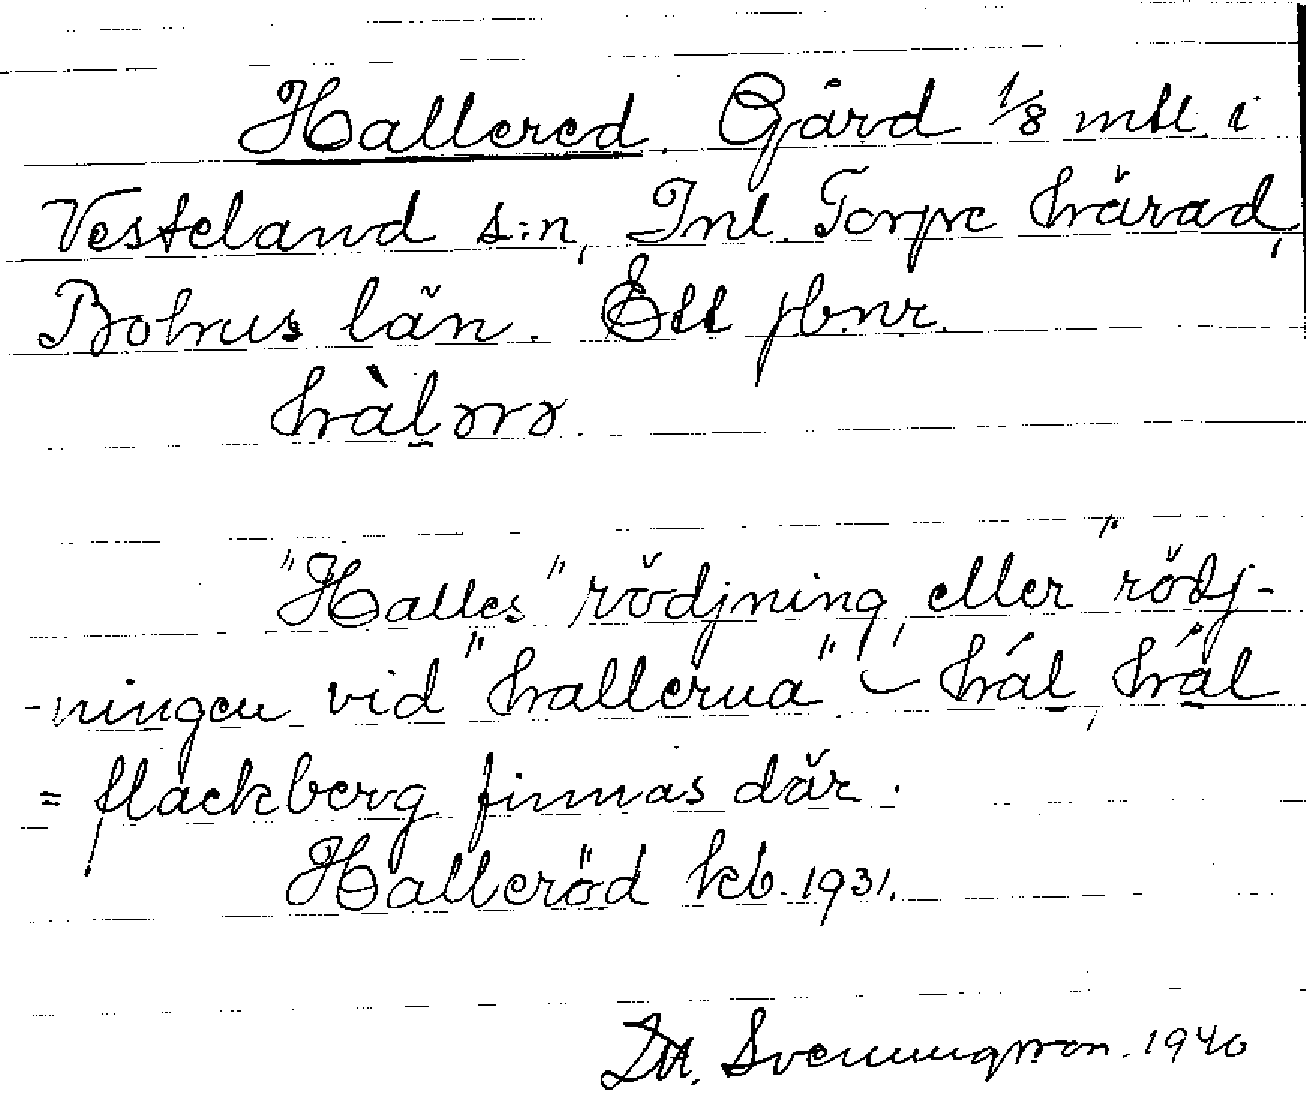 Hallered. Gård 1/8 mtl. i
Vesteland s:n, Inl. Torpe härad,
Bohus län. Ett jb.nr.
hàḷərə.
"Halles" rödjning, eller "rödj-
-ningen vid "hallerna" – háḷ, háḷ
= flackberg finnas där.
Halleröd kb. 1931.
M. Svenungsson. 1940